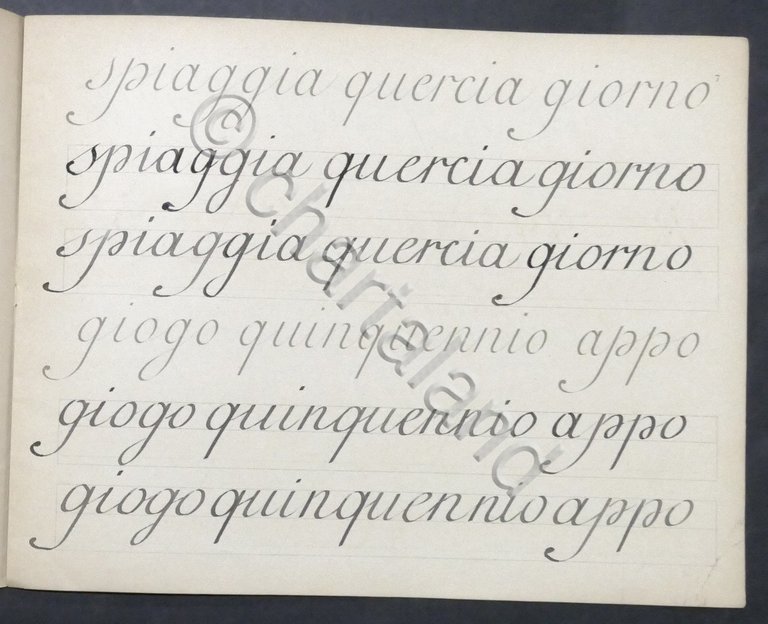 spiaggia quercia giorno
spiaggia quercia giorno
spiaggia quercia giorno
giogo quinquennio appo
giogo quinquennio appo
giogo quinquennio appo
© chartaland